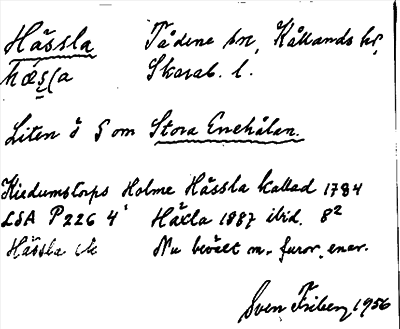 Hässla Tådene sn, Kållands hd,
hæṣḷa Skarab. l.
Liten ö S om Stora Enehålan.
Kiedumstorps Holme Hässla kallad 1784
LSA P 226 4¹ Häxla 1887 ibid. 8²
Hässla Nu beväxt m. furor, ener.
Sven Friberg 1956